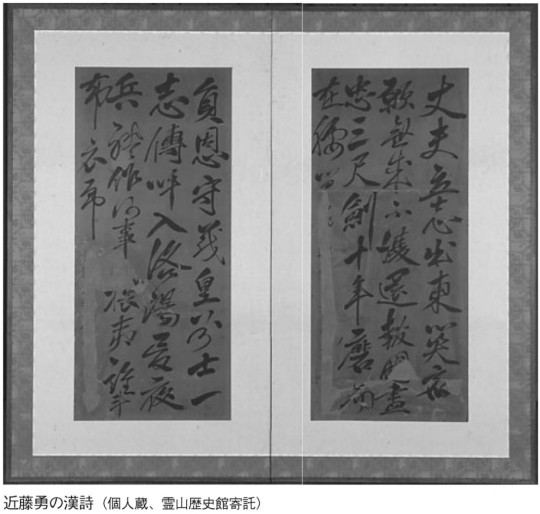 丈夫立志出東関宿
願無成不復還報国盡
忠三尺劍十年磨而
在腰間
負恩守義皇州士一
志傳呼入洛陽夜
兵作何事攘夷誰
布衣
近藤勇の漢詩（個人蔵、霊山歴史館寄託）